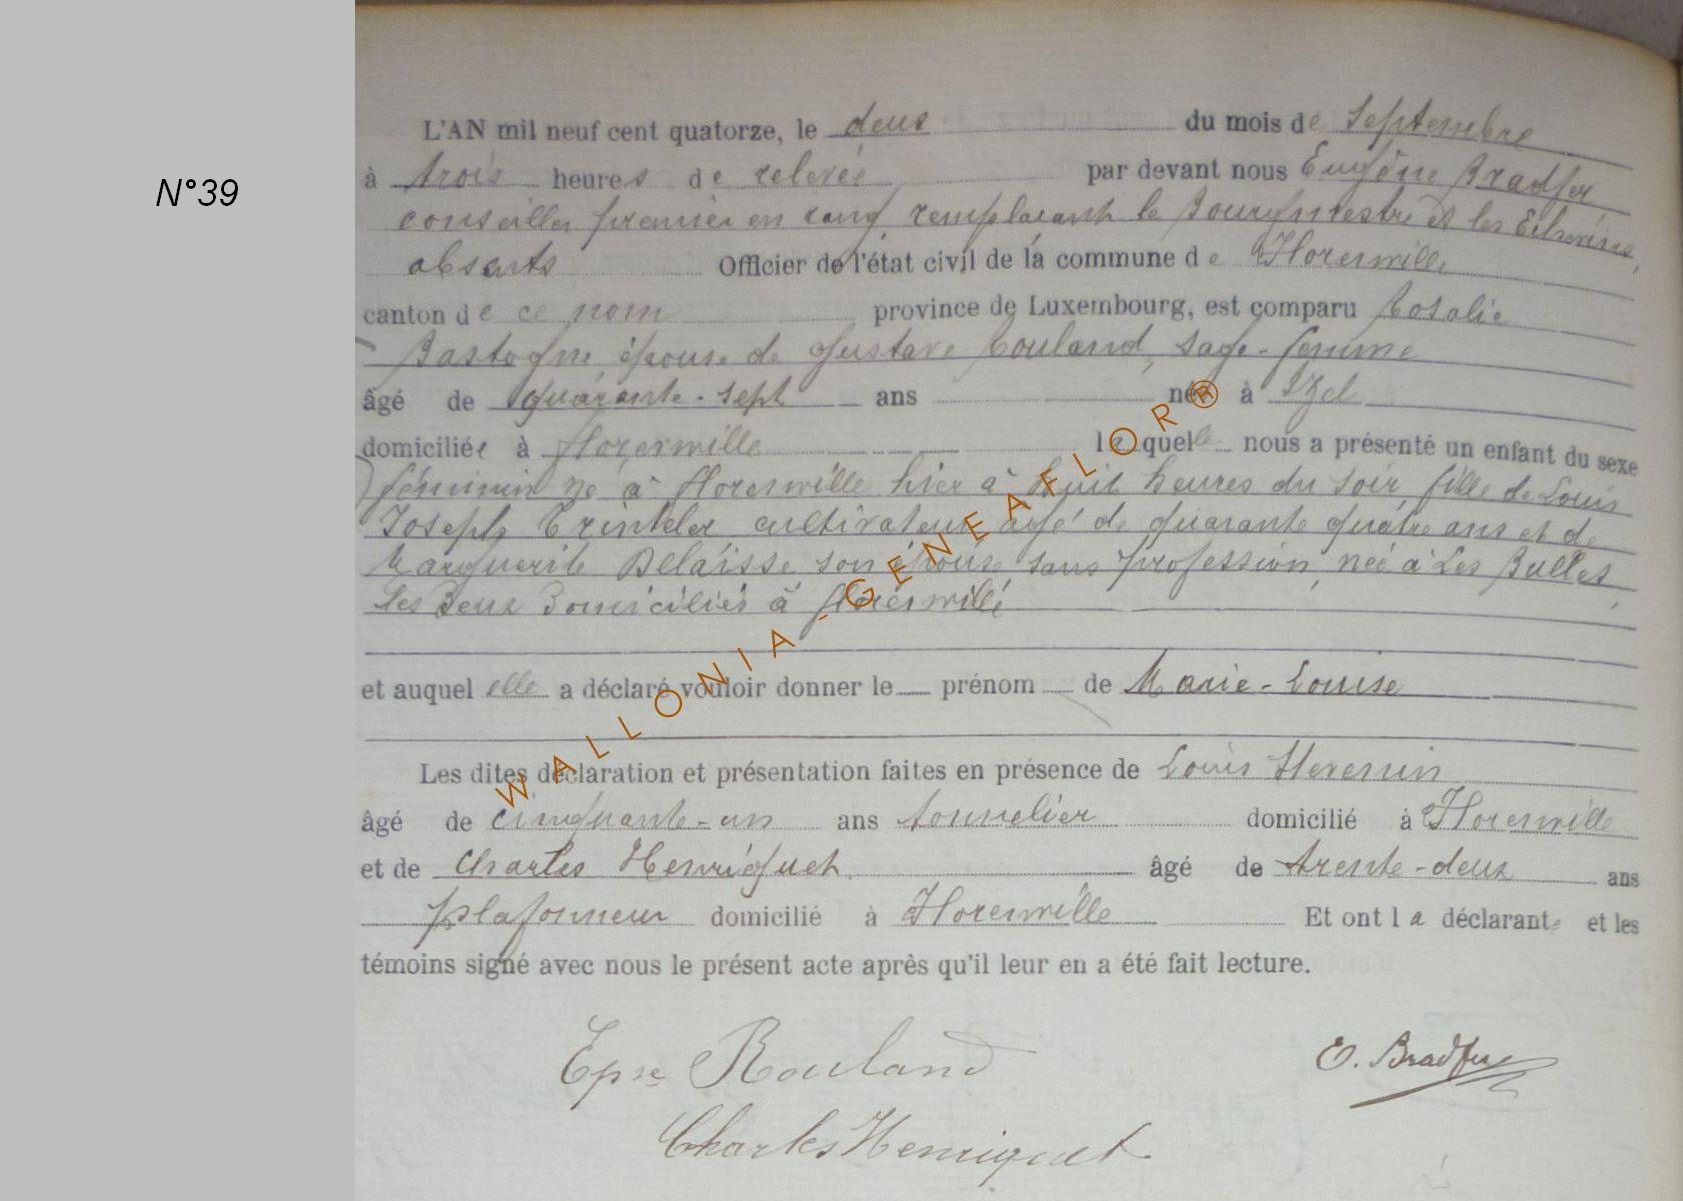 N°39
L'AN mil neuf cent quatorze, le deux du mois de Septembre
à trois heures de relevée par devant nous Eugène Bradfer
conseiller premier en rang, remplaçant le Bourgmestre et les Echevins
absents Officier de l'état civil de la commune de Florenville,
canton de ce nom province de Luxembourg, est comparu Rosalie
Bastogne, épouse de Gustave Rouland, sage-femme
âgé de quarante-sept ans née à Izel
domiciliée à Florenville laquelle nous a présenté un enfant du sexe
féminin né à Florenville hier à huit heures du soir, fille de Louis
Joseph cultivateur âgé de quarante quatre ans et de
Marguerite Delaisse son épouse sans profession, née à Les Bulles,
les deux domiciliés à Florenville
et auquel elle a déclaré vouloir donner le prénom de Marie-Louise
Les dites déclaration et présentation faites en présence de Louis
âgé de cinquante-un ans tonnelier domicilié à Florenville
et de Charles Henriquet âgé de trente-deux ans
plafonneur domicilié à Florenville Et ont la déclarante et les
témoins signé avec nous le présent acte après qu'il leur en a été fait lecture.
Epse Rouland
E. Bradfer
Charles Henriquet
WALLONIA-GENEAFLOR®